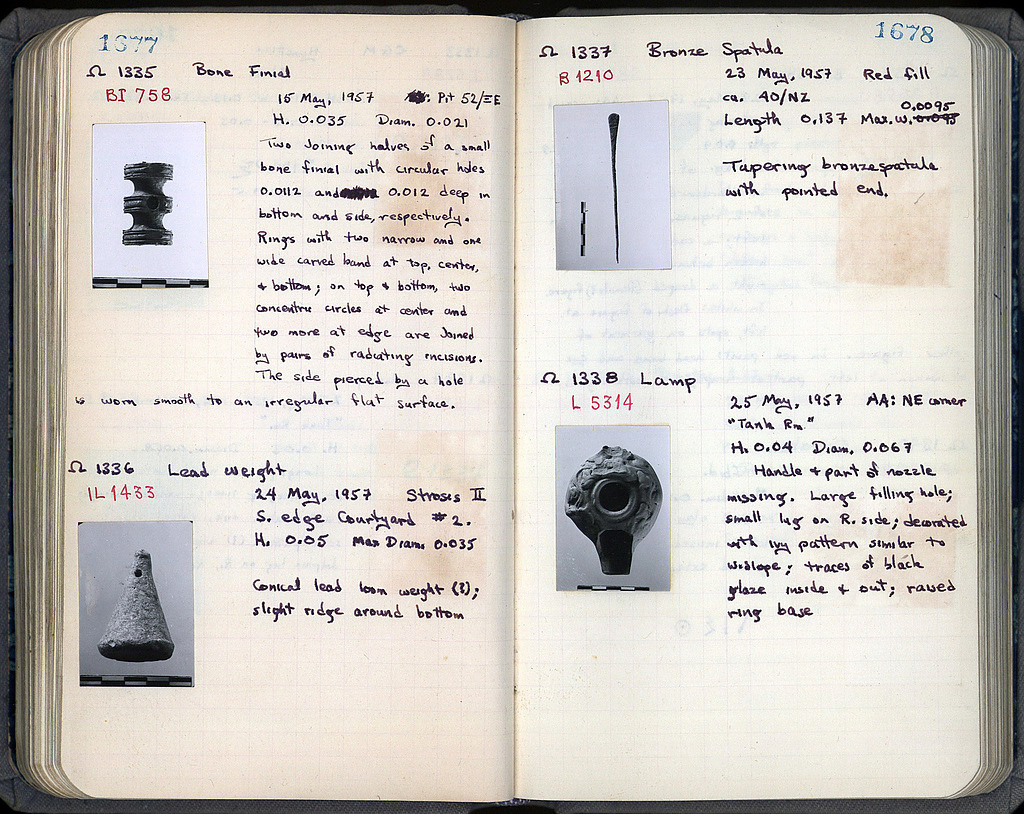 1677
Ω 1335 Bone Finial
BI 758
15 May, 1957 : Pit 52/ΞE
H. 0.035 Diam. 0.021
Two joining halves of a small
bone finial with circular holes
0.0112 and 0.012 deep in
bottom and side, respectively.
Rings with two narrow and one
wide carved band at top, center,
& bottom; on top & bottom, two
concentric circles at center and
two more at edge are joined
by pairs of radiating incisions.
The side pierced by a hole
is worn smooth to an irregular flat surface.
Ω 1336 Lead weight
IL 1433
24 May, 1957 Stroses II
S. edge Courtyard #2.
H. 0.05 Max Diam. 0.035
Conical lead loom weight (?);
slight ridge around bottom
1678
Ω 1337 Bronze Spatula
B 1210
23 May, 1957 Red fill
ca. 40/NZ
Length 0.137 Max. W. 0.095 0.0095
Tapering bronze spatula
with pointed end.
Ω 1338 Lamp
L 5314
25 May, 1957 AA: NE corner
"Tank Rm."
H. 0.04 Diam. 0.067
Handle & part of nozzle
missing. Large filling hole;
small lug on R. side; decorated
with ivy pattern similar to
wslope; traces of black
glaze inside & out; raised
ring base